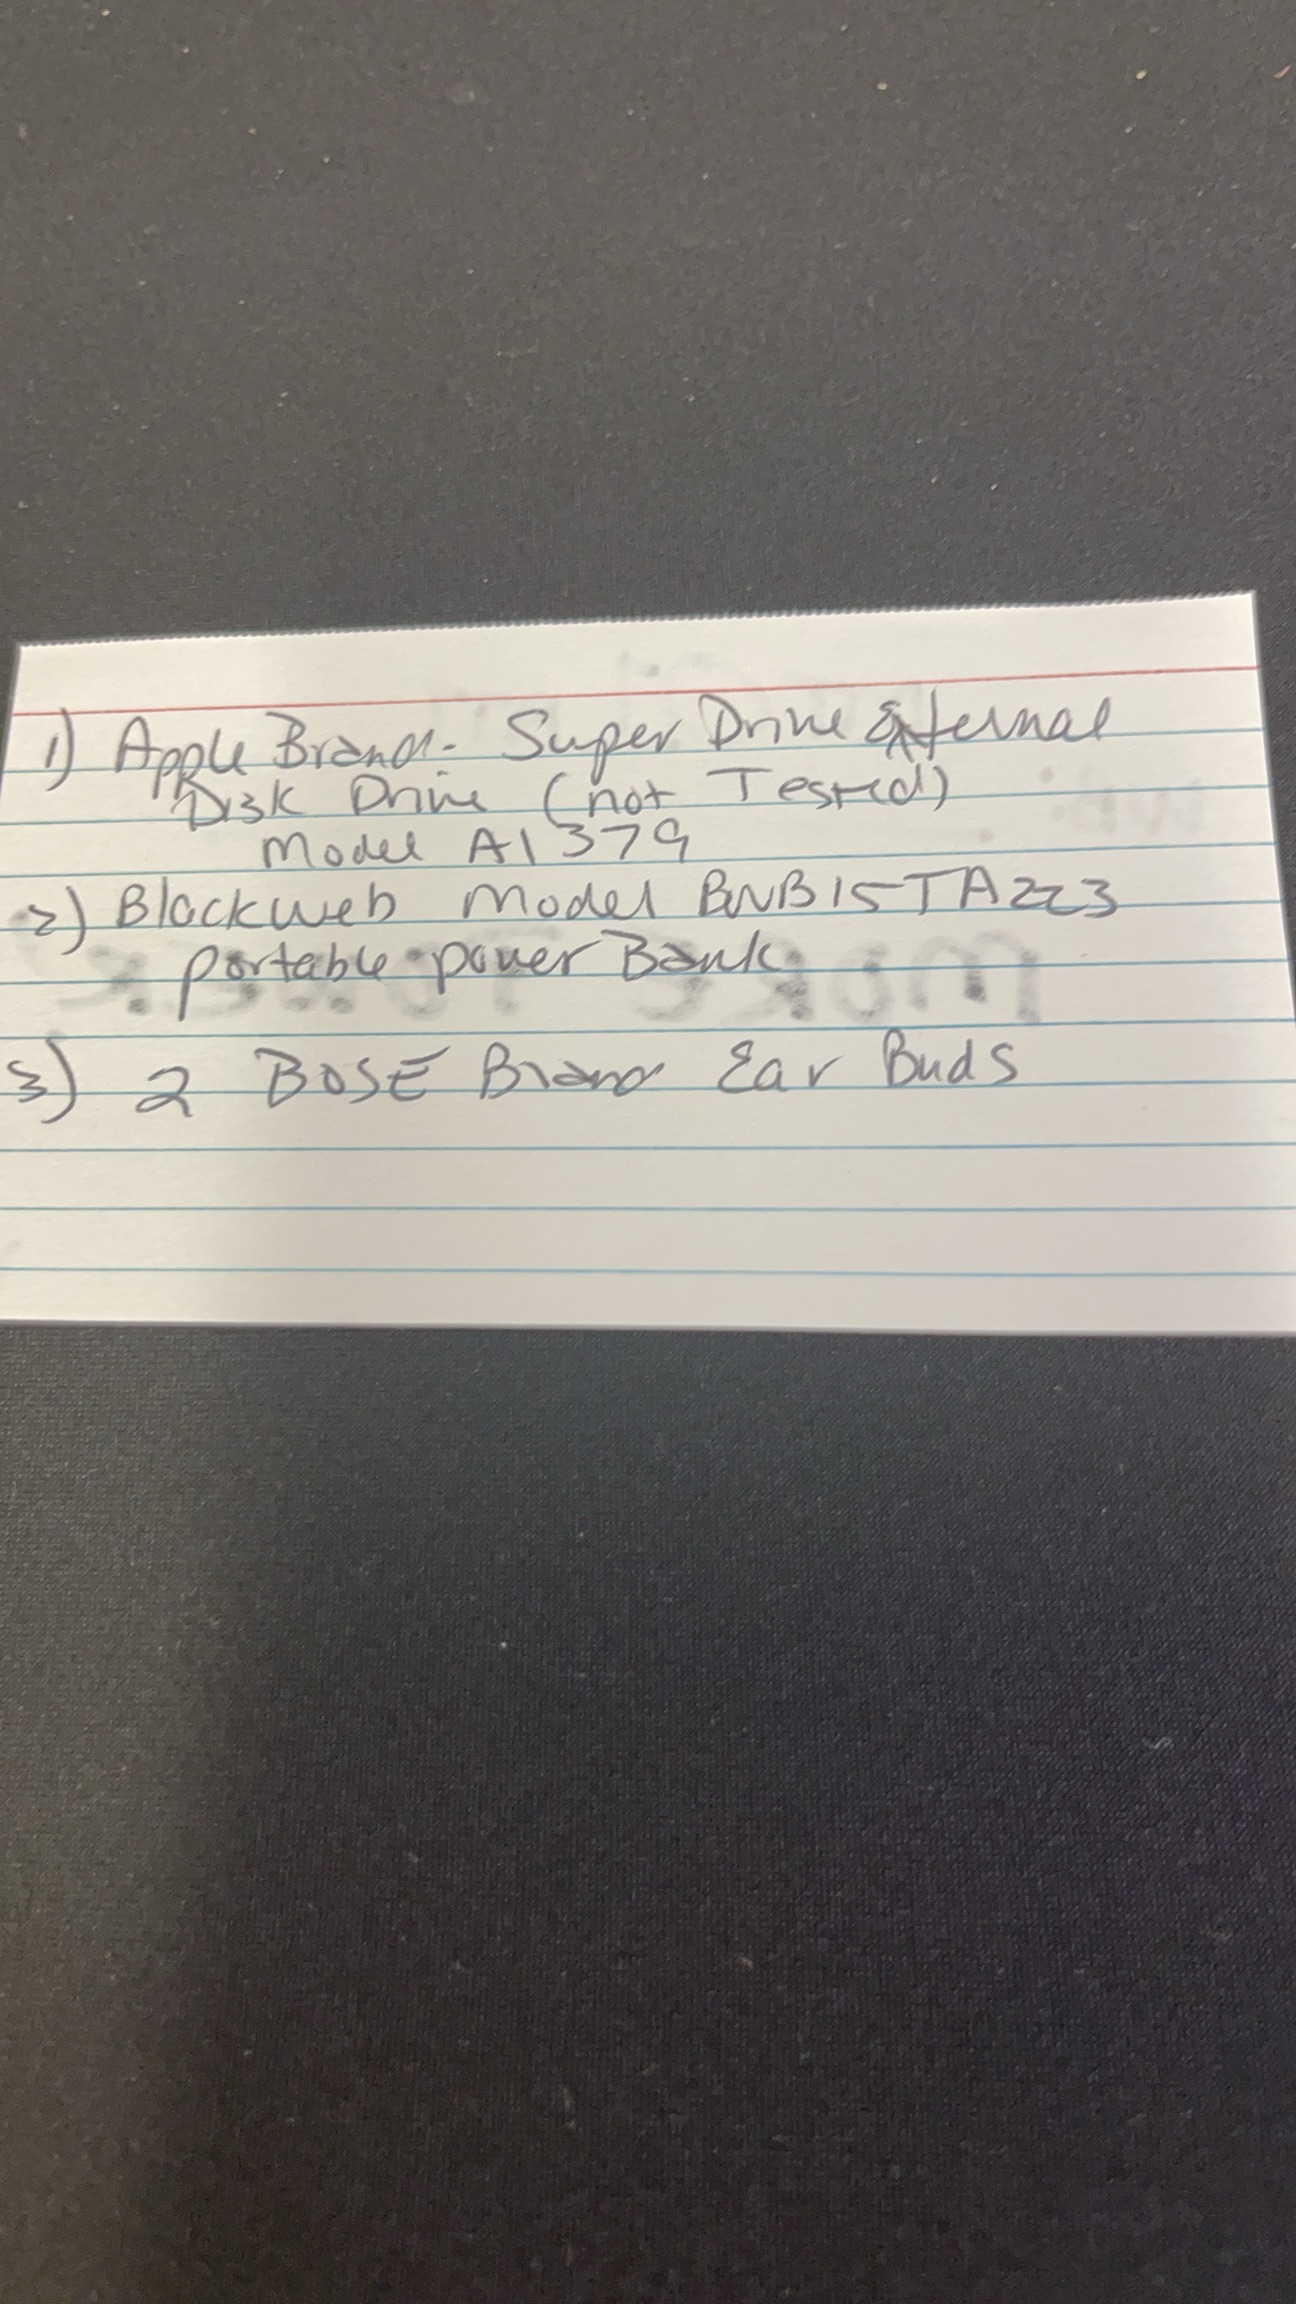 1) Apple Brand- Super Drive External
Disk Drive (not Tested)
Model A1379
2) Blackweb Model BWB15TA223
portable power Bank
3) 2 BOSE Brand Ear Buds